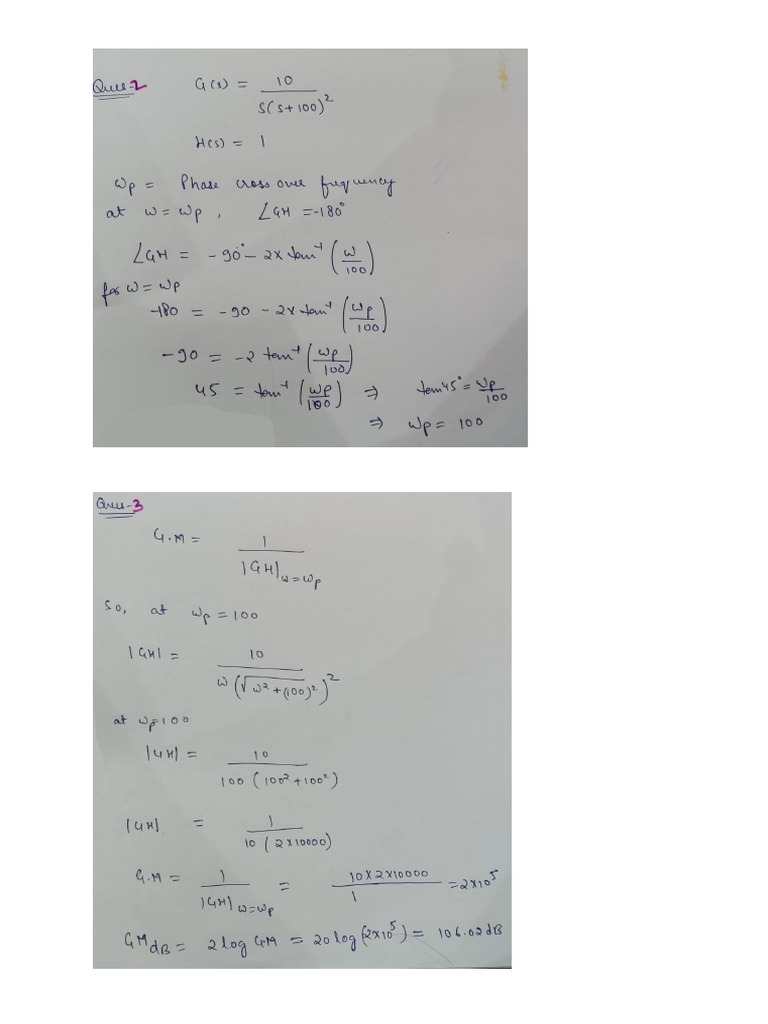 Ques-2 G(s) = 10 / S(S+100)²
H(s) = 1
ωp = Phase cross over frequency
at ω = ωp , ∠GH = -180°
∠GH = -90° - 2x tan⁻¹ (ω/100)
for ω = ωp
-180 = -90 - 2x tan⁻¹ (ωp/100)
-90 = -2 tan⁻¹ (ωp/100)
45 = tan⁻¹ (ωp/100) ⇒ tan45° = ωp/100
⇒ ωp = 100
Ques-3
G.M = 1 / |GH|ω=ωp
So, at ωp = 100
|GH| = 10 / ω(√ω²+(100)²)²
at ωp=100
|GH| = 10 / 100 (100²+100²)
|GH| = 1 / 10 (2x10000)
G.M = 1 / |GH|ω=ωp = 10x2x10000 / 1 = 2x10⁵
GMdB = 2 log GM = 20 log(2x10⁵) = 106.02dB